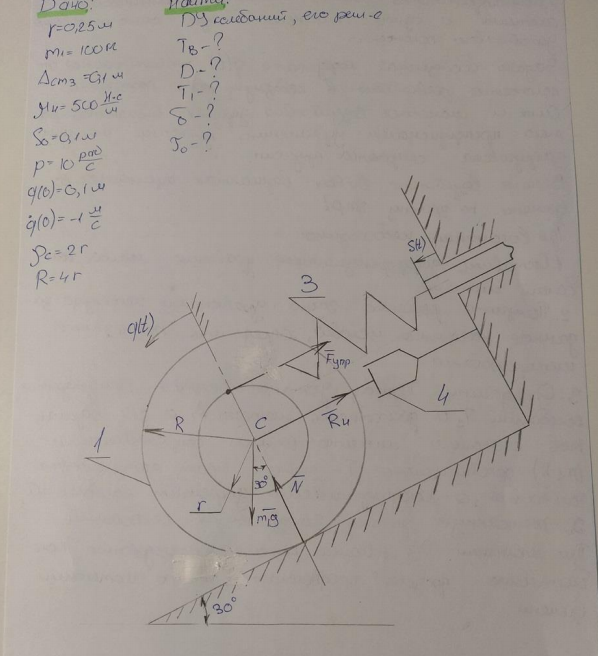 Дано:
r=0,25 м
m₁=100 кг
Δст3=0,1 м
μ₄=500 Н·с/м
S₀=0,1 м
p=10 рад/с
q(0)=0,1 м
q̇(0)=-1 м/с
ρc=2r
R=4r
Найти:
ДУ колебаний, его реш-е
Tв-?
D-?
T₁-?
δ-?
S(t)
3
q(t)
F̄упр
4
R̄₄
C
R
1
30°
N̄
r
m₁ḡ
30°